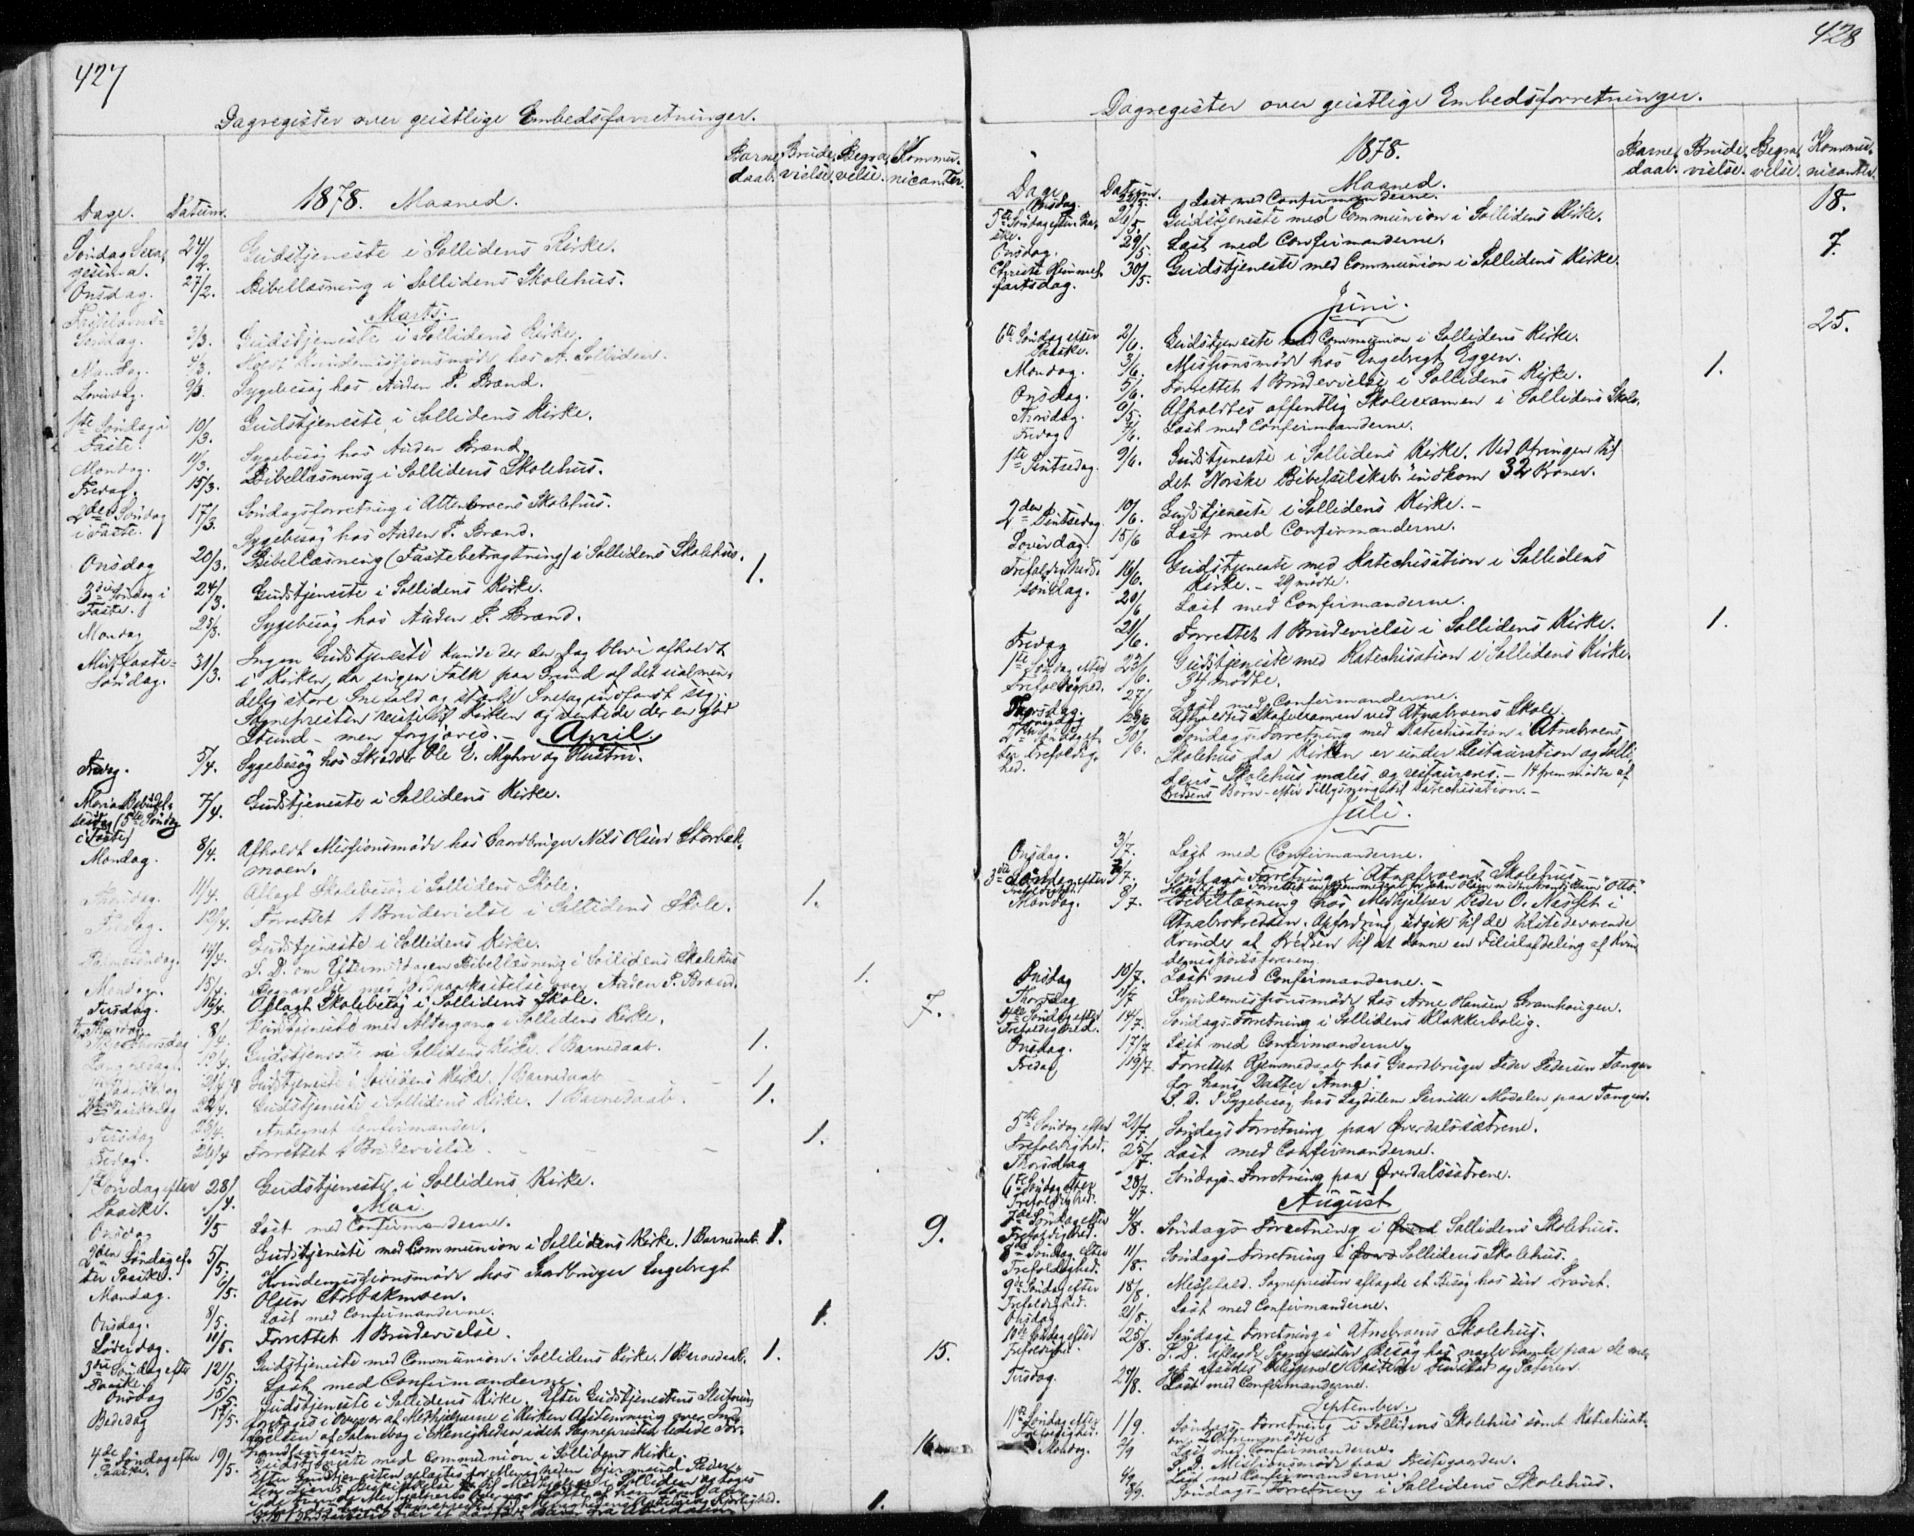 427
Dagregister over geistlige Embedsforretninger.
Dage. Datum. 1878. Maaned. Barne daab. Brude vielse. Begra velse. Kommu- nicanter.
Søndag Sexa- gesima. 24/2. Gudstjeneste i Sollidens Kirke.
Onsdag. 27/2. Bibellæsning i Sollidens Skolehus.
Marts.
Fastelavns- Søndag. 3/3. Gudstjeneste i Sollidens Kirke.
Mandag. 4/3. Holdt Kvindemissionsmøde hos A. Solliden.
Løverdag. 9/3. Sygebesøg hos Auden P. Brænd.
1ste Søndag i Faste. 10/3. Gudstjeneste i Sollidens Kirke.
Mandag. 11/3. Sygebesøg hos Auden Brænd.
Fredag. 15/3. Bibellæsning i Sollidens Skolehus.
2den Søndag i Faste. 17/3. Søndagsforretning i Atnebroens Skolehus.
Sygebesøg hos Auden P. Brænd.
Onsdag 20/3. Bibellæsning (Fastebetragtning) i Sollidens Skolehus.
3die Søndag i Faste. 24/3. Gudstjeneste i Sollidens Kirke. 1.
Mandag 25/3. Sygebesøg hos Auden P. Brænd.
Midfaste- Søndag. 31/3. Ingen Gudstjeneste kunde der den Dag blive afholdt
i Kirken, da ingen Folk paa Grund af det ualmin-
delig store Snefald og stærke Snetag indfandt sig.
Sognepresten reiste til Kirken og ventede der en god
Stund - men forgjæves. -
April
Fredag. 5/4. Sygebesøg hos Skrædder Ole E. Myhre og Hustru.
Maria Bebudel- sesdag (5te Søndag i Faste) 7/4. Gudstjeneste i Sollidens Kirke.
Mandag. 8/4. Afholdt Missionsmøde hos Gaardbruger Nils Olsen Storbæk-
moen.
Thorsdag. 11/4. Aflagt Skolebesøg i Sollidens Skole.
Fredag. 12/4. Forrettet 1 Brudevielse i Sollidens Skole. 1.
Palmesøndag. 14/4. Gudstjeneste i Sollidens Kirke.
S. D. om Eftermiddagen Bibellæsning i Sollidens Skolehus
Mandag. 15/4. Begravelse med Jordpaakastelse over Auden P. Brænd. 1.
Tirsdag. 16/4. Aflagt Skolebesøg i Sollidens Skole.
Skjærthorsdag 18/4. Gudstjeneste med Altergang i Sollidens Kirke. 7.
Langfredag. 19/4. Gudstjeneste i Sollidens Kirke. 1 Barnedaab. 1.
1ste Paaskedag 21/4 Gudstjeneste i Sollidens Kirke. 1 Barnedaab - 1
2den Paaskedag 22/4. Gudstjeneste i Sollidens Kirke. 1 Barnedaab. 1.
Tirsdag 23/4. Antegnet Confirmander.
Fredag. 26/4 Forrettet 1 Brudevielse - - - 1.
1ste Søndag efter Paaske. 28/4. Gudstjeneste i Sollidens Kirke.
Mai.
Onsdag 1/5 Læst med Confirmanderne.
2den Søndag ef- ter Paaske. 5/5. Gudstjeneste med Communion i Sollidens Kirke. 1 Barnedaab. 1. 9.
Mandag. 6/5. Kvindemissionsmøde hos Gaardbruger Engebregt
Olsen Storbækmoen.
Onsdag. 8/5. Læst med Confirmanderne.
Løverdag. 11/5. Forrettet 1 Brudevielse. 1.
3die Søndag efter Paaske. 12/5. Gudstjeneste med Communion i Sollidens Kirke. 1 Barnedaab. 1. 15.
Onsdag 15/5. Læst med Confirmanderne.
Bededag 17/5. Gudstjeneste i Sollidens Kirke. Efter Gudstjenestens Slutning
foretoges i Nærvær af Medhjælperne i Kirken Afstemning over Ind-
førelsen af Salmebog i Menigheden idet Sognepresten ledede For-
handlingen.
4de Søndag efter Paaske. 19/5. Gudstjeneste med Communion i Sollidens Kirke. 16
Efter Gudstjenesten
1.

428
Dagregister over geistlige Embedsforretninger.
Dage. Datum. 1878. Maaned. Barne daab. Brude vielse. Begra velse. Kommu- nicanter.
Onsdag. 22/5. Læst med Confirmanderne.
5te Søndag efter Paa- ske. 26/5. Gudstjeneste med Communion i Sollidens Kirke. 18.
Onsdag. 29/5. Læst med Confirmanderne.
Christi Himmel- fartsdag. 30/5. Gudstjeneste med Communion i Sollidens Kirke. 7.
Juni.
6te Søndag efter Paaske. 2/6. Gudstjeneste med Communion i Sollidens Kirke. 25.
Mandag. 3/6. Missionsmøde hos Engebregt Eggen.
Onsdag. 5/6. Forrettet 1 Brudevielse i Sollidens Kirke. 1.
Thorsdag. 6/5. Afholdtes offentlig Skoleexamen i Sollidens Skole.
Fredag 7/6. Læst med Confirmanderne.
1ste Pintsedag. 9/6. Gudstjeneste i Sollidens Kirke. Ved Ofringen til
det Norske Bibelselskab indkom 32 Kroner.
2den Pintsedag. 10/6. Gudstjeneste i Sollidens Kirke. -
Løverdag. 15/6 Læst med Confirmanderne.
Trefoldigheds- Søndag. 16/6. Gudstjeneste med Katechisation i Sollidens
Kirke. - 29 mødte.
20/6 Læst med Confirmanderne.
Fredag 21/6. Forrettet 1 Brudevielse i Sollidens Kirke. 1.
1ste Søndag efter Trefoldighed. 23/6. Gudstjeneste med Katechisation i Sollidens Kirke.
34 mødte.
Thorsdag. 27/6 Læst med Confirmanderne.
Løverdag 29/6 Afholdtes Skoleexamen ved Atnebroens Skole.
2den Søndag ef- ter Trefoldig- hed. 30/6. Søndags-Forretning med Katechisation i Atnebroens
Skolehus da Kirken er under Restauration og Solli-
dens Skolehus males og restaureres. - 14 fremmødte af
Kredsens Børn - efter Tillysning til Katechisation. -
Juli.
Onsdag. 3/7. Læst med Confirmanderne.
3die Søndag efter Trefoldighed. 7/7. Søndags-Forretning i Atnebroens Skolehus. -
Mandag. 8/7. Bibellæsning hos Medhjælper Peder O. Næsset i
Atnebrokredsen. Opfordring udgik til de tilstedeværende
Kvinder af Kredsen til at danne en Filialafdeling af Kvin-
demissionsforening.
Onsdag 10/7. Læst med Confirmanderne. -
Thorsdag 11/7 Kvindemissionsmøde hos Arne Hansen Bramhaugen.
4de Søndag efter Trefoldighed. 14/7. Søndags-Forretning i Sollidens Klokkerbolig.
Onsdag. 17/7 Læst med Confirmanderne.
Fredag 19/7. Forrettet Hjemmedaab hos Gaardbruger Peder Pedersen Tangen
for hans Datter "Anna".
S. D. 1 Sygebesøg hos Lægdslem Pernille Modalen paa Tangen.
5te Søndag efter Trefoldighed. 21/7. Søndags Forretning paa Øverdalssætrene.
Thorsdag 25/7. Læst med Confirmanderne.
6te Søndag efter Trefoldighed. 28/7. Søndags-Forretning paa Øverdalssætrene.
August
7de Søndag efter Trefoldighed. 4/8. Søndags Forretning i Sollidens Skolehus.
8de Søndag efter Trefoldighed. 11/8. Søndags-Forretning i Sollidens Skolehus.
9de Søndag efter Trefoldighed. 18/8. Messefald. Sognepresten aflagde et Besøg hos sin Provst.
Onsdag 21/8. Læst med Confirmanderne.
10de Søndag efter Trefoldighed. 25/8. Søndags Forretning i Atnebroens Skolehus.
S. D. aflagde Sognepresten Besøg hos nogle Samle paa de me-
get afsides beliggende Pladse
Tirsdag. 27/8. Læst med Confirmanderne.
September.
11te Søndag efter Trefoldighed. 1/9. Søndags-Forretning i Sollidens Skolehus samt Katechisati-
on, 20 fremmødte.
Mandag. 2/9 Læst med Confirmanderne.
S. D. Missionsmøde paa Prestegaarden.
4/9 Læst med Confirmanderne.
8/9. Søndags-Forretning i Sollidens Skolehus.